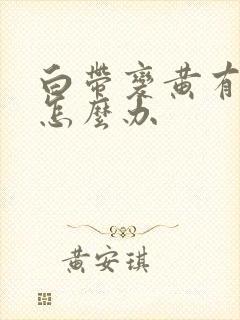 白帶變黃有
怎麼办
黄安琪